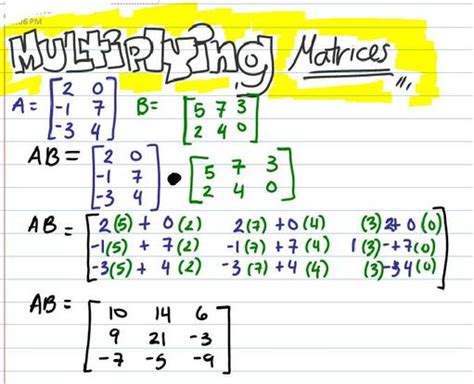 :06 PM
Multiplying Matrices
A = [ 2 0 B = [ 5 7 3
-1 7 2 4 0 ]
-3 4 ]
AB = [ 2 0
-1 7
-3 4 ] • [ 5 7 3
2 4 0 ]
AB = [ 2(5) + 0(2) 2(7) + 0(4) (3)2+ 0(0)
-1(5) + 7(2) -1(7) + 7(4) 1(3)-+7(0)
-3(5) + 4(2) -3(7) + 4(4) (3)-3 4(0) ]
AB = [ 10 14 6
9 21 -3
-7 -5 -9 ]